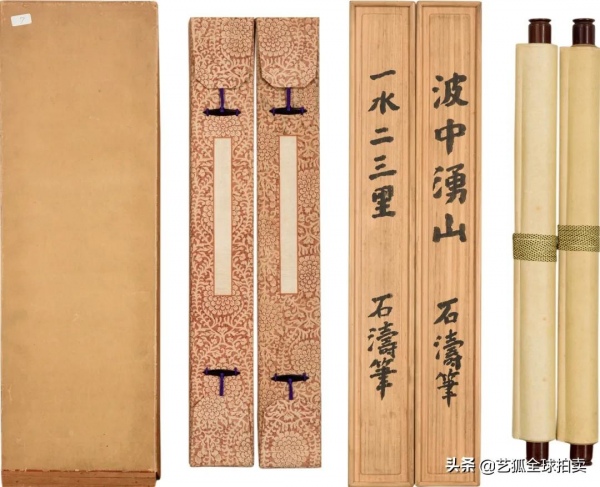 7
波中湧山 石濤筆
一水二三里 石濤筆
头条 @艺狐全球拍卖